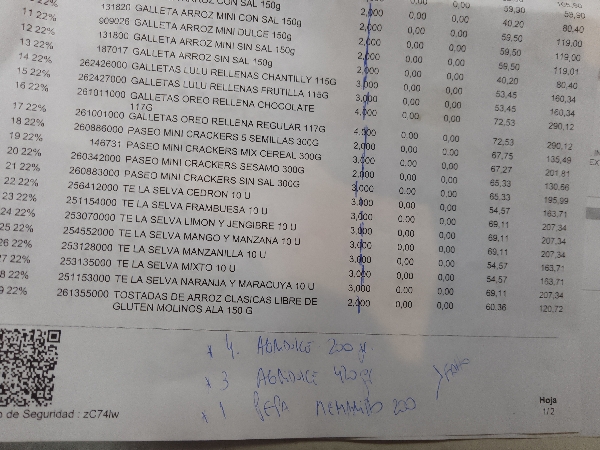 CON SAL 150g 2,000 0,00 0,00 40,20 80,40
131820 GALLETA ARROZ MINI CON SAL 150g 2,000 0,00 0,00 59,50 119,00
11 22% 909026 GALLETA ARROZ MINI DULCE 150g 2,000 0,00 0,00 59,50 119,00
12 22% 131800 GALLETA ARROZ MINI SIN SAL 150g 2,000 0,00 0,00 59,50 119,01
13 22% 187017 GALLETA ARROZ SIN SAL 150g 2,000 0,00 0,00 40,20 80,40
14 22% 262426000 GALLETAS LULU RELLENAS CHANTILLY 115G 3,000 0,00 0,00 53,45 160,34
15 22% 262427000 GALLETAS LULU RELLENAS FRUTILLA 115G 3,000 0,00 0,00 53,45 160,34
16 22% 261011000 GALLETAS OREO RELLENA CHOCOLATE 4,000 0,00 0,00 72,53 290,12
117G
17 22% 261001000 GALLETAS OREO RELLENA REGULAR 117G 4,000 0,00 0,00 72,53 290,12
18 22% 260886000 PASEO MINI CRACKERS 5 SEMILLAS 300G 2,000 0,00 0,00 67,75 135,49
19 22% 146731 PASEO MINI CRACKERS MIX CEREAL 300G 3,000 0,00 0,00 67,27 201,81
20 22% 260342000 PASEO MINI CRACKERS SESAMO 300G 2,000 0,00 0,00 65,33 130,66
21 22% 260883000 PASEO MINI CRACKERS SIN SAL 300G 3,000 0,00 0,00 65,33 195,99
22 22% 256412000 TE LA SELVA CEDRON 10 U 3,000 0,00 0,00 54,57 163,71
23 22% 251154000 TE LA SELVA FRAMBUESA 10 U 3,000 0,00 0,00 69,11 207,34
24 22% 253070000 TE LA SELVA LIMON Y JENGIBRE 10 U 3,000 0,00 0,00 69,11 207,34
25 22% 254552000 TE LA SELVA MANGO Y MANZANA 10 U 3,000 0,00 0,00 69,11 207,34
26 22% 253128000 TE LA SELVA MANZANILLA 10 U 3,000 0,00 0,00 54,57 163,71
27 22% 253135000 TE LA SELVA MIXTO 10 U 3,000 0,00 0,00 54,57 163,71
28 22% 251153000 TE LA SELVA NARANJA Y MARACUYA 10 U 3,000 0,00 0,00 69,11 207,34
29 22% 261355000 TOSTADAS DE ARROZ CLASICAS LIBRE DE 2,000 0,00 0,00 60,36 120,72
GLUTEN MOLINOS ALA 150 G
x 4 AGRIDULCE 200 gr
x 3 AGRIDULCE 420 gr
x 1 200
Hoja
1/2
de Seguridad : zC74Iw